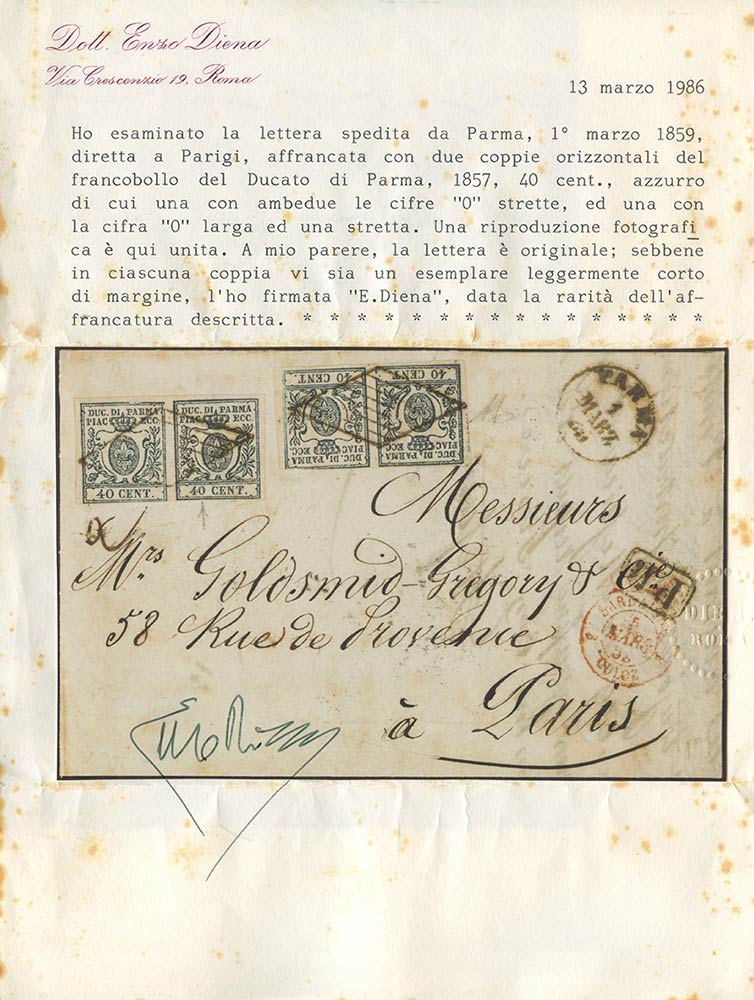 Dott. Enzo Diena
Via Crescenzio 19, Roma
13 marzo 1986
Ho esaminato la lettera spedita da Parma, 1° marzo 1859,
diretta a Parigi, affrancata con due coppie orizzontali del
francobollo del Ducato di Parma, 1857, 40 cent., azzurro
di cui una con ambedue le cifre "0" strette, ed una con
la cifra "0" larga ed una stretta. Una riproduzione fotografi
ca è qui unita. A mio parere, la lettera è originale; sebbene
in ciascuna coppia vi sia un esemplare leggermente corto
di margine, l'ho firmata "E.Diena", data la rarità dell'af-
francatura descritta. * * * * * * * * * * * * * * * *
DUC. DI PARMA
PIAC. ECC.
40 CENT.
DUC. DI PARMA
PIAC. ECC.
40 CENT.
DUC. DI PARMA
PIAC. ECC.
40 CENT.
DUC. DI PARMA
PIAC. ECC.
40 CENT.
PARMA
1
MARZ
Messieurs
Mrs Goldsmid-Gregory & Cie
P.D.
58 Rue de Provence
5
MARS
CULOZ
à Paris